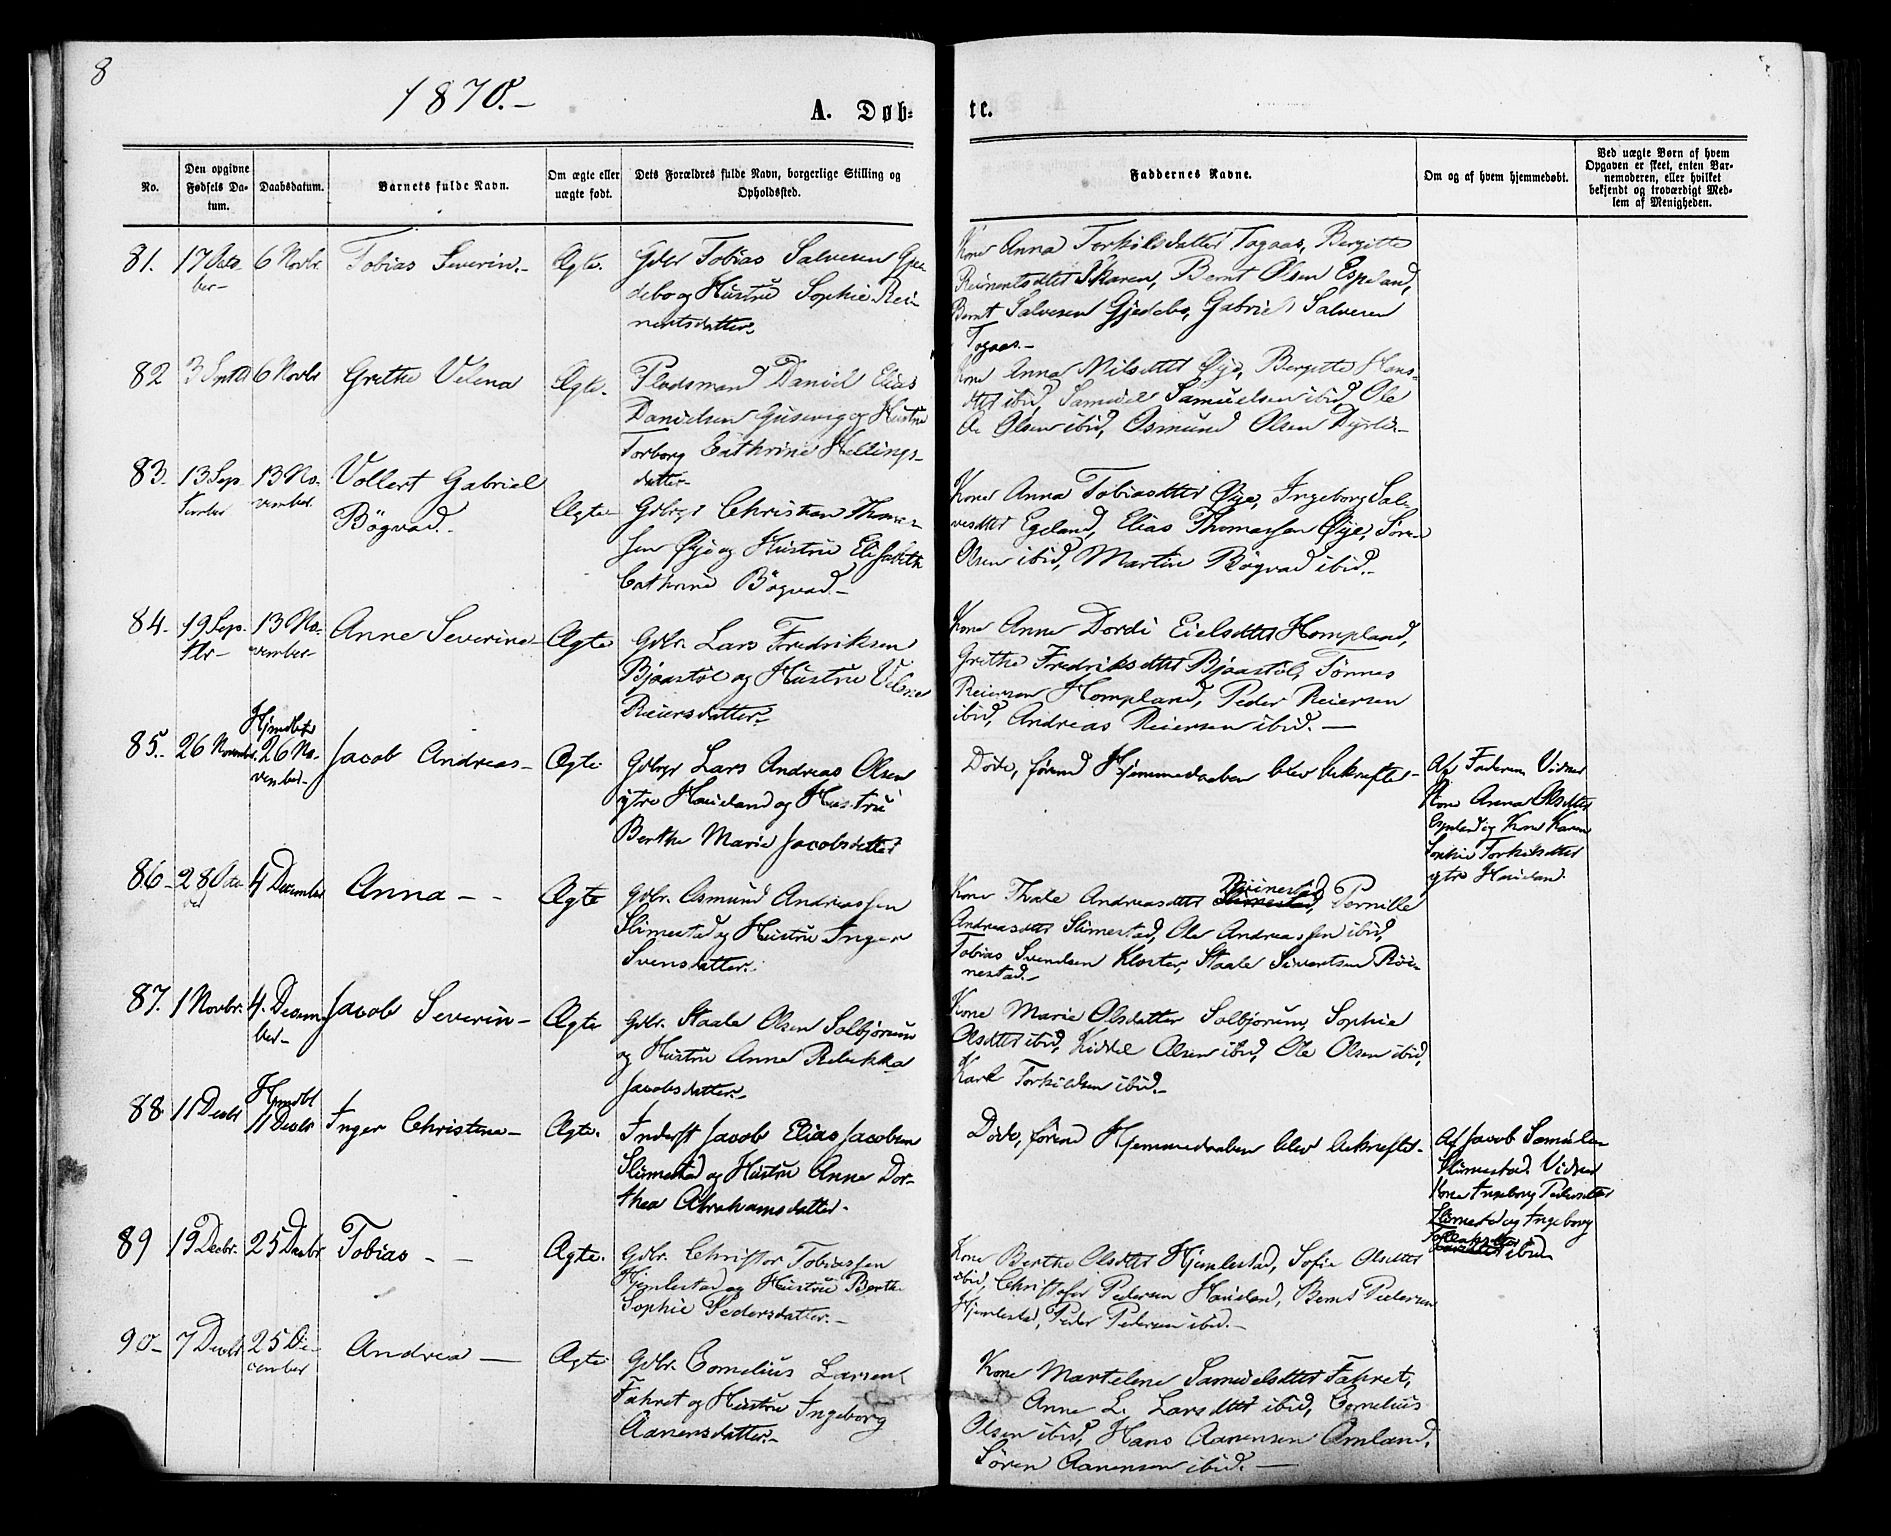 8
1870.-
A. Døb-
te.
No.
Den opgivne Fødsels Da-tum.
Daabsdatum.
Barnets fulde Navn.
Om ægte eller uægte født.
Dets Forældres fulde Navn, borgerlige Stilling og Opholdssted.
Faddernes Navne.
Om og af hvem hjemmedøbt.
Ved uægte Børn af hvem Opgaven er skeet, enten Bar-nemoderen, eller hvilket bekjendt og troværdigt Med-lem af Menigheden.
81. 17 Octo- 6 Novbr. Tobias Severin.- Ægte. Gdbr Tobias Salvesen Gje-
ber- debo og Hustru Sophie Rei-
nertsdatter.-
Kone Anna Torkilsdatter Togaas, Bergitte
Reinertsdtter Skaren, Bernt Olsen Espeland,
Bernt Salvesen Gjedebo, Gabriel Salvesen
Togaas.-
82 3 Septbr 6 Novbr Grethe Velena Ægte. Pladsmand Daniel Elias
Danielsen Gusevig og Hustru
Torborg Cathrine Hellings-
datter-
Kone Anna Nilsdtter Øye, Bergitte Hans-
dtter ibid, Samuel Samuelsen ibid, Ole
O. Olsen ibid, Osmund Olsen Dyrli.-
83. 13 Sep- 13 No- Vollert Gabriel
tember vember Bøgvad.- Ægte- Gdbrgr Christian Thomas-
sen Øye og Hustru Elisabeth
Cathrine Bögvad.-
Kone Anna Tobiasdtter Øye, Ingeborg Sal-
vesdtter Egeland, Elias Thomassen Øye, Sören
Olsen ibid, Martin Bøgvad ibid.-
84- 19 Sep- 13 No- Anne Severine- Ægte Gdbr. Lars Fredriksen
tbr- vember- Bjaastöl og Hustru Velene
Reiersdatter.-
Kone Anne Dordi Eielsdtter Hompland,
Grethe Fredriksdtter Bjaastöl, Tönnes
Reiersen Hompland, Peder Reiersen
ibid, Andreas Reiersen ibid.-
Hjmdbt
85.- 26 November 26 No- Jacob Andreas- Ægte Gdbrgr Lars Andreas Olsen
vember- ytre Haueland og Hustru
Berthe Marie Jacobsdatter
Döde, förend Hjemmedaaben blev bekræftet-
Af Faderen Vidner
Kone Anna Olsdtter
Espeland og Kone Karen
Sophie Torkilsdtter
ytre Haueland.
86- 28 Octo- 4 December Anna - - Ægte Gdbr. Asmund Andreassen
ber Slimestad og Hustru Inger
Svensdatter.
Kone Thale Andreasdtter Reinestad, Pernille
Andreasdtter Slimestad, Ole Andreassen ibid,
Tobias Svendsen Kloster, Staale Sivertsen Rei-
nestad.-
87. 1 Novbr. 4. Decem- Jacob Severin- Ægte Gdbr. Staale Olsen Solbjørum
ber- og Hustru Anne Rebekka
Jacobsdatter.-
Kone Marie Olsdatter Solbjorum, Sophie
Olsdtter ibid, Kiddel Olsen ibid, Ole Olsen ibid,
Karl Torkildsen ibid.-
Hjmdbt
88 11 Decbr 11 Decbr Inger Christine- Ægte. Inderst Jacob Elias Jacobsen
Slimestad og Hustru Anne Dor-
thea Abrahamsdatter.
Döde, förend Hjemmedaaben blev bekræftet-
Af Jacob Samuelsen
Slimestad. Vidner
Kone Ingeborg Pedersdtter
Slimestad og Ingeborg
ibid
89 19 Decbr. 25 Decbr Tobias - - Ægte. Gdbr. Christoffer Tobiassen
Hjemlestad og Hustru Berthe
Sophie Pedersdatter.-
Kone Berthe Olsdtter Hjemlestad, Sofie Olsdtter
ibid, Christoffer Pedersen Haueland, Bernt Pedersen
Hjemlestad, Peder Pedersen ibid.-
90- 7 Decbr 25 De- Andrea - Ægte Gdbr. Cornelius Larsen
cember Fahret og Hustru Ingeborg
Aanensdatter.-
Kone Martelene Samuelsdtter Fahret,
Anne L. Larsdtter ibid, Cornelius
Olsen ibid, Hans Aanensen Omland,
Sören Aanensen ibid.-